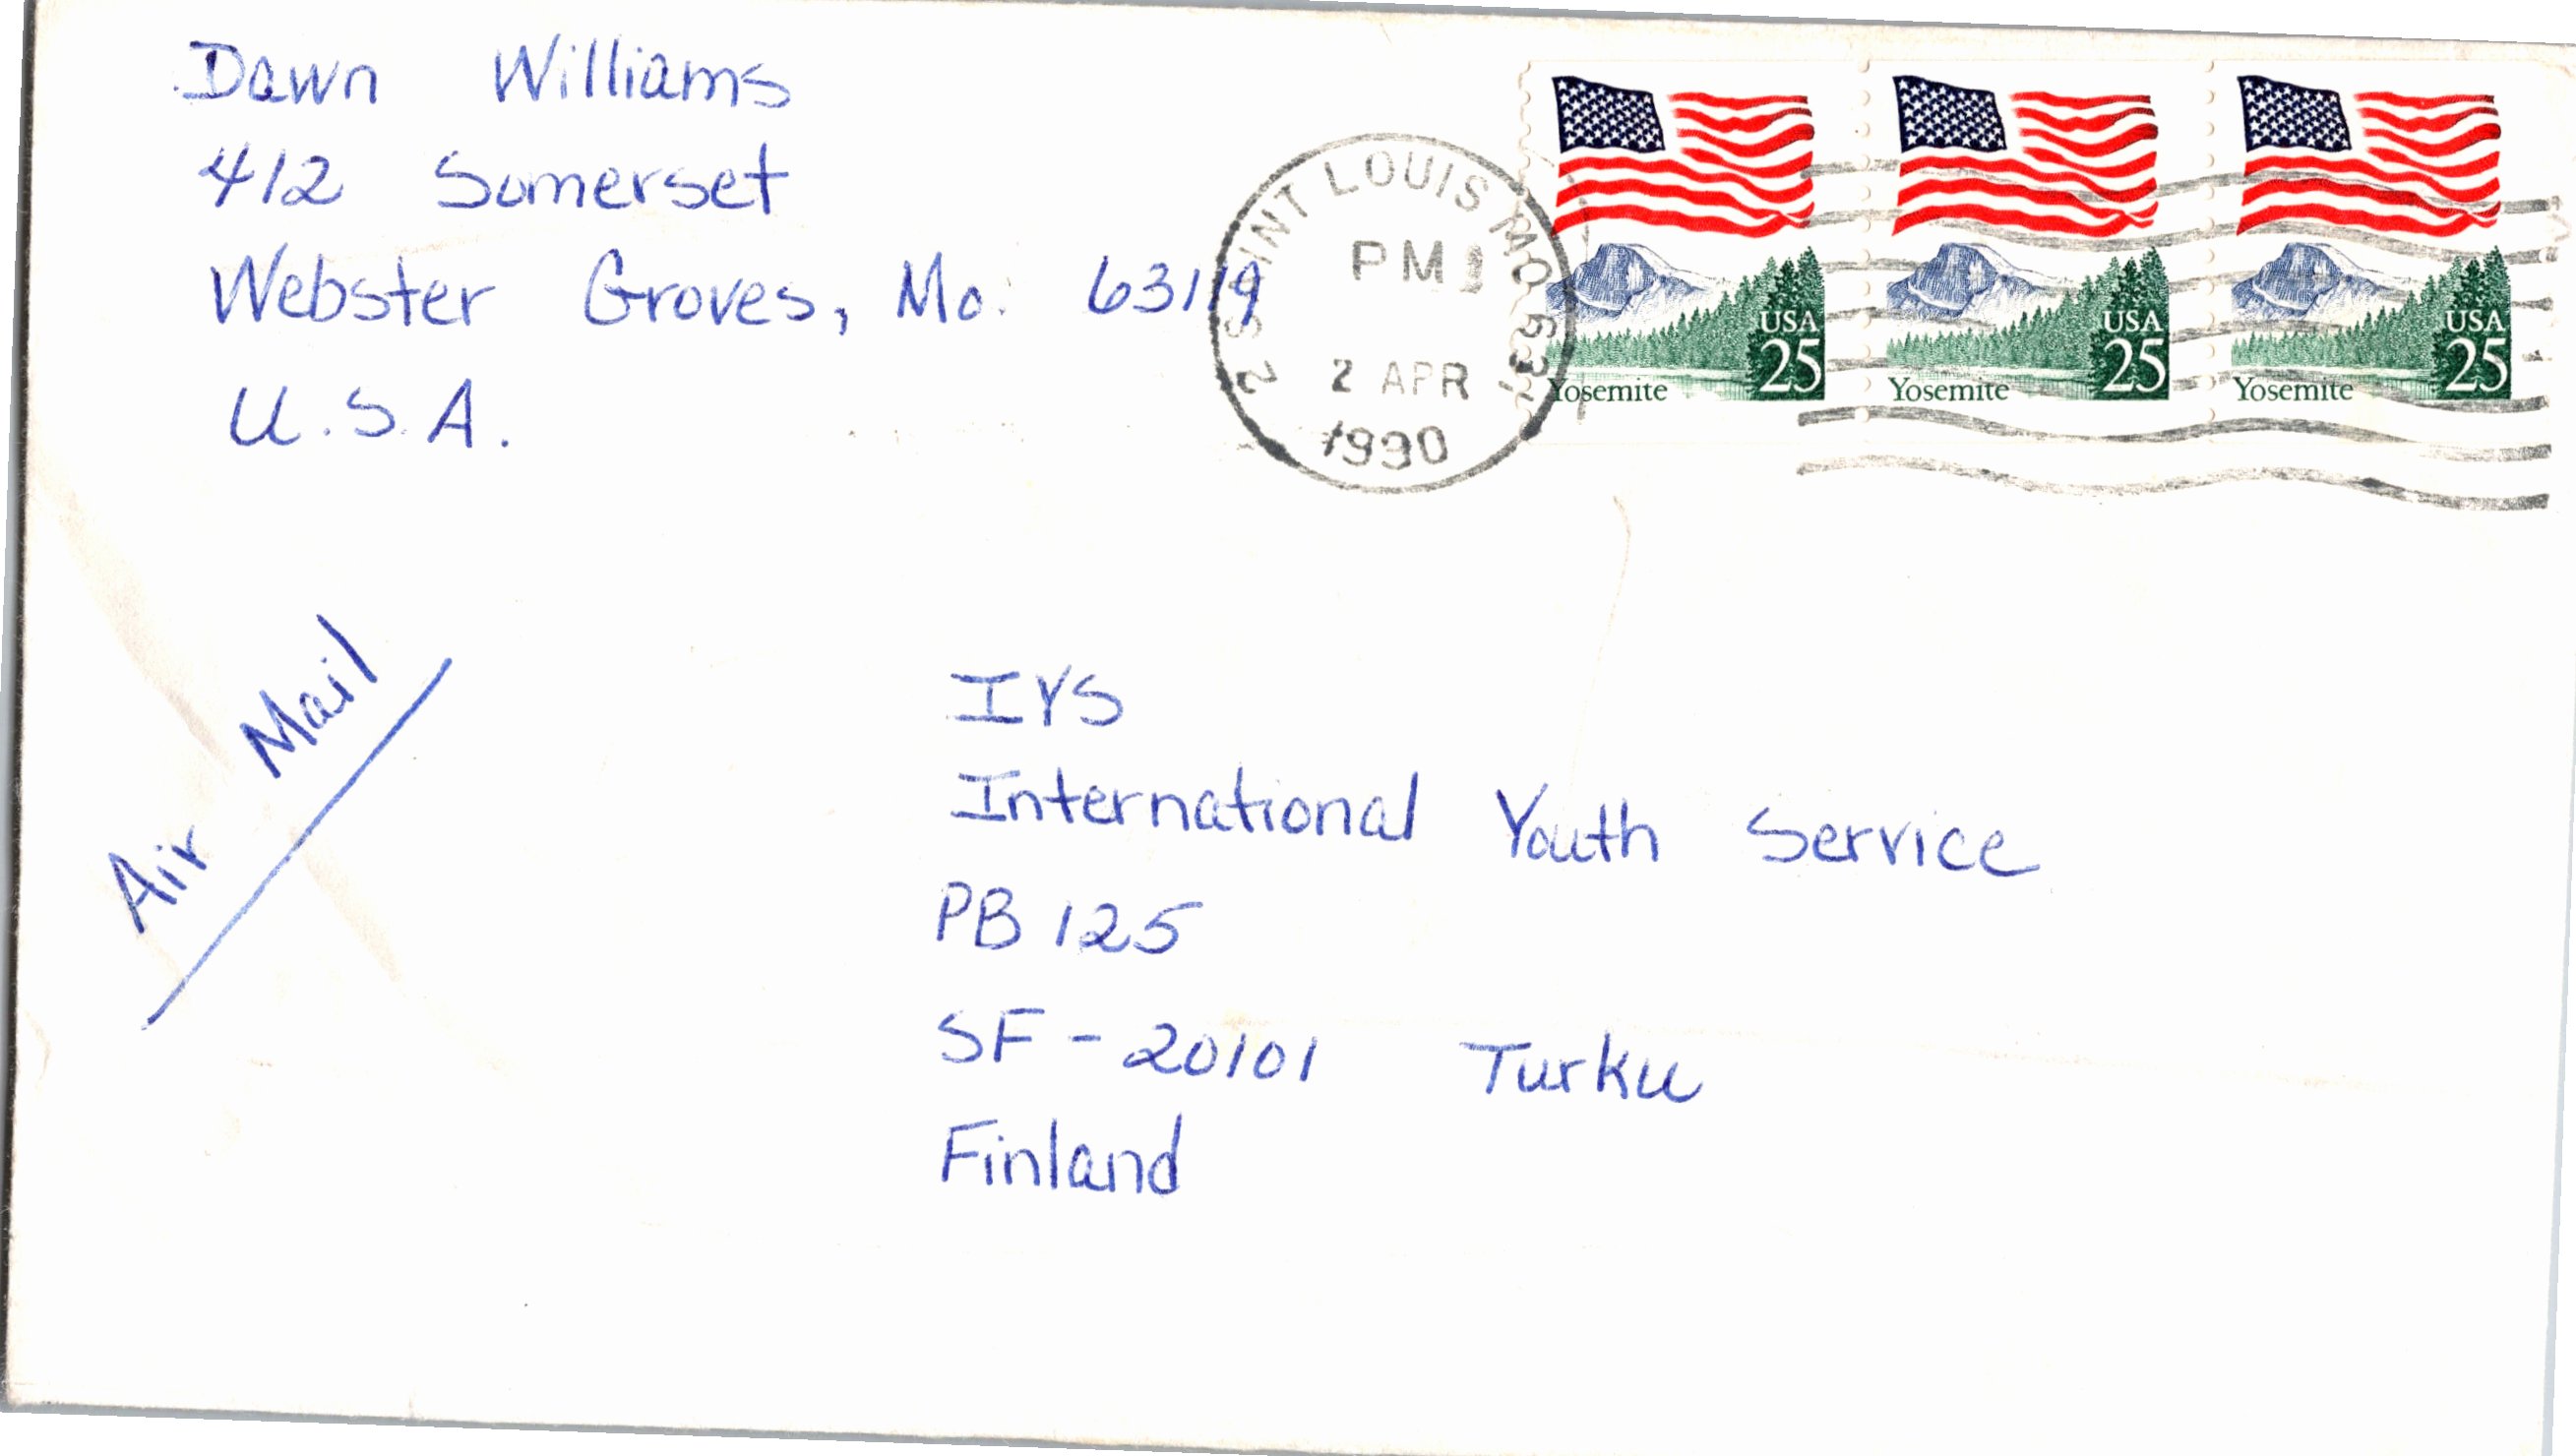 Dawn Williams
412 Somerset
Webster Groves, Mo. 63119
U.S.A.
SAINT LOUIS MO
PM
2 APR
1990
USA
25
Yosemite
USA
25
Yosemite
USA
25
Yosemite
Air Mail
IYS
International Youth Service
PB 125
SF - 20101 Turku
Finland